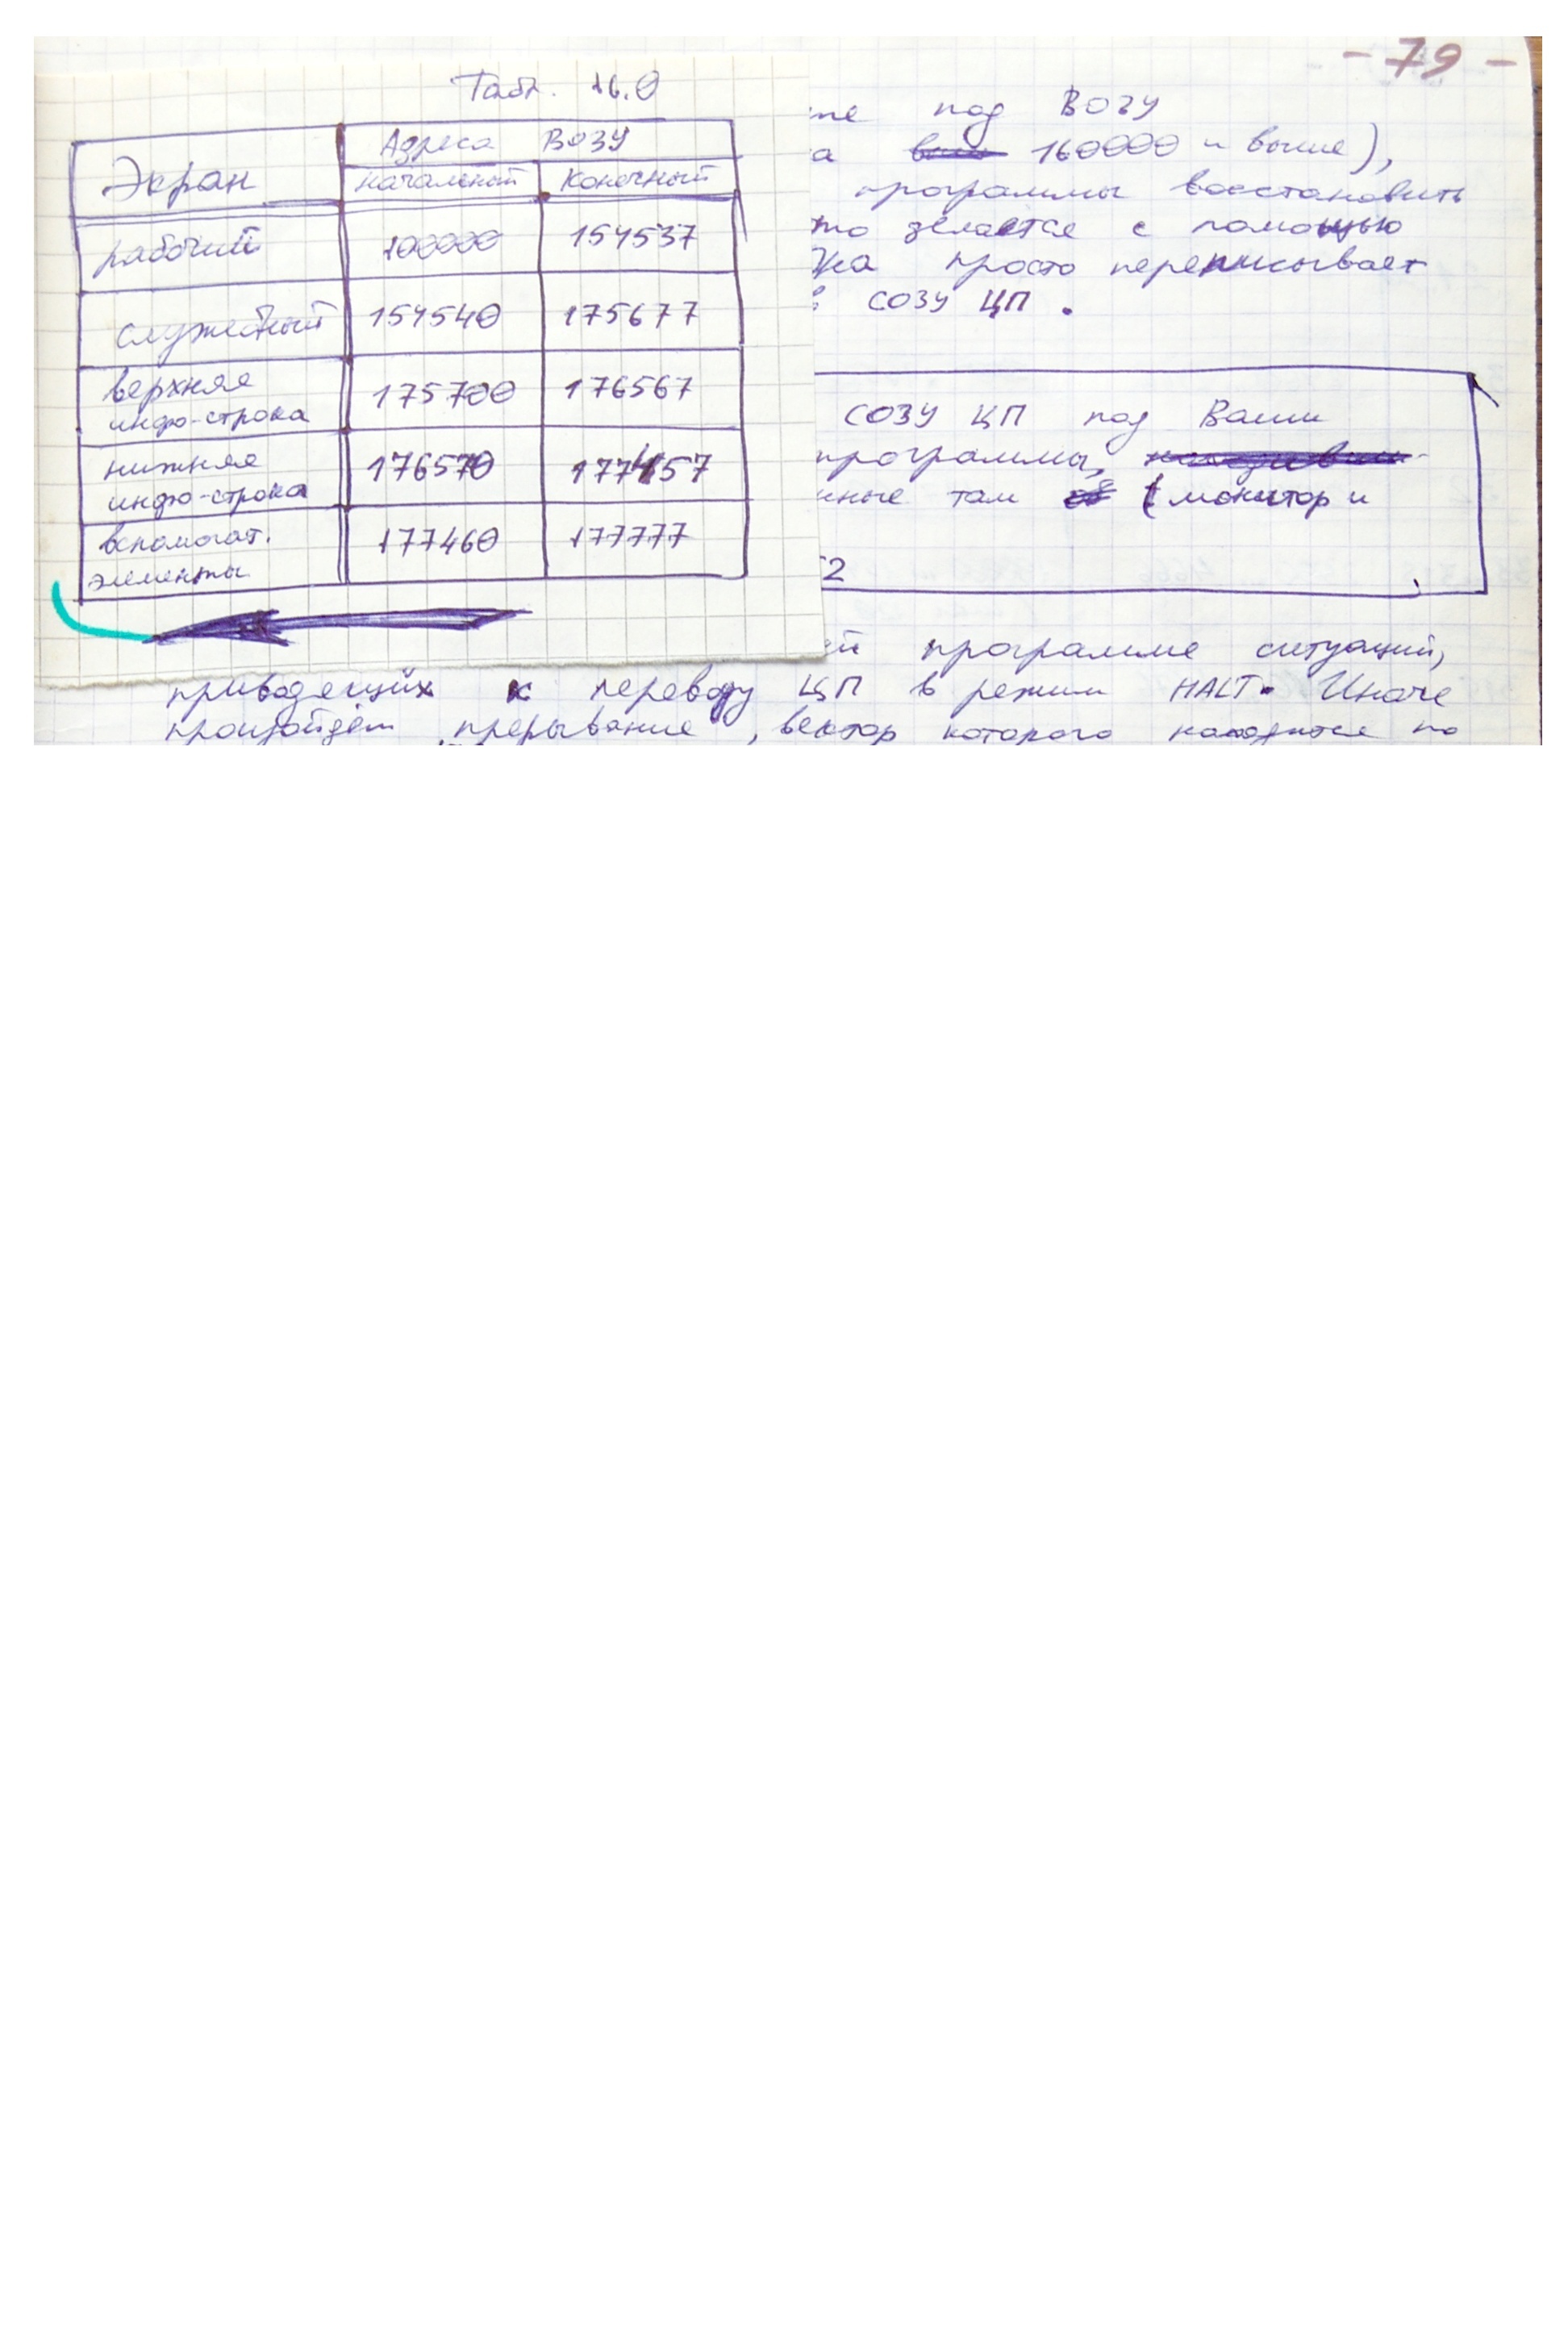 - 79 -
Табл. 16.0
Экран
Адреса ВОЗУ
начальный
конечный
рабочий 100000 154537
служебный 154540 175677
верхняя
инфо-строка
175700 176567
нижняя
инфо-строка
176570 177457
вспомогат.
элементы
177460 177777
под ВОЗУ
а 160000 и выше),
программы восстановить
то делается с помощью
просто переписывает
СОЗУ ЦП.
СОЗУ ЦП под Ваши
программы,
нные там (монитор и
2
ей программе ситуаций,
приводящих к переводу ЦП в режим HALT. Иначе
произойдёт прерывание, вектор которого находится по